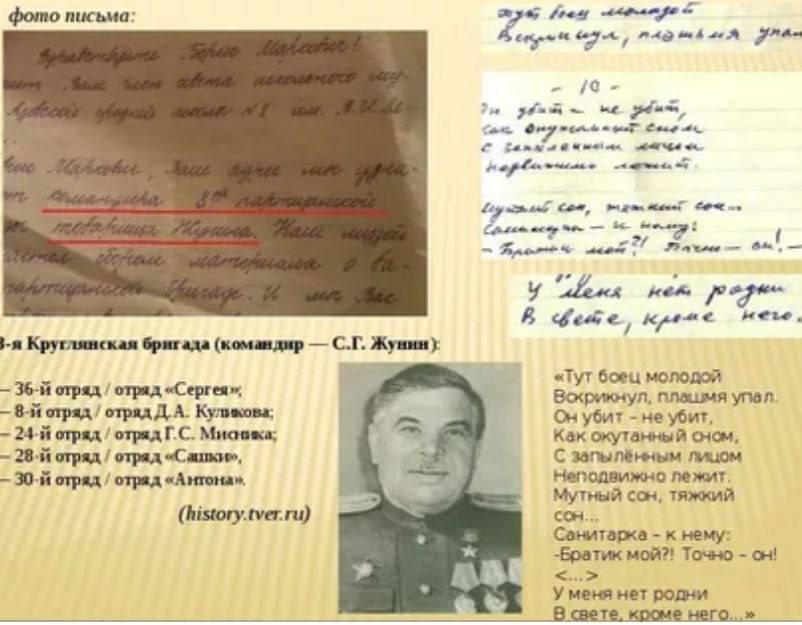 фото письма:
Здравствуйте Борис Маркович!
Вам член совета школьного му-
средней школы №8 им.
Маркович, Ваш адрес мы узна-
командира 8ой партизанской
товарища Жунина. Наш музей
сбором материала о ва-
партизанской бригаде. И мы Вас
тут боец молодой
Вскрикнул, плашмя упал
- 10 -
Он убит - не убит,
как окутанный сном
с запыленным лицом
Недвижимо лежит.
Мутный сон, тяжкий сон...
Санитарка - к нему:
- Братик мой?! Точно - он! -
У меня нет родни
В свете, кроме него.
8-я Круглянская бригада (командир — С.Г. Жунин):
— 36-й отряд / отряд «Сергея»;
— 8-й отряд / отряд Д.А. Куликова;
— 24-й отряд / отряд Г.С. Мисника;
— 28-й отряд / отряд «Сашки»,
— 30-й отряд / отряд «Антона».
(history.tver.ru)
«Тут боец молодой
Вокрикнул, плашмя упал.
Он убит – не убит,
Как окутанный сном,
С запылённым лицом
Неподвижно лежит.
Мутный сон, тяжкий
сон...
Санитарка – к нему:
-Братик мой?! Точно – он!
<...>
У меня нет родни
В свете, кроме него...»